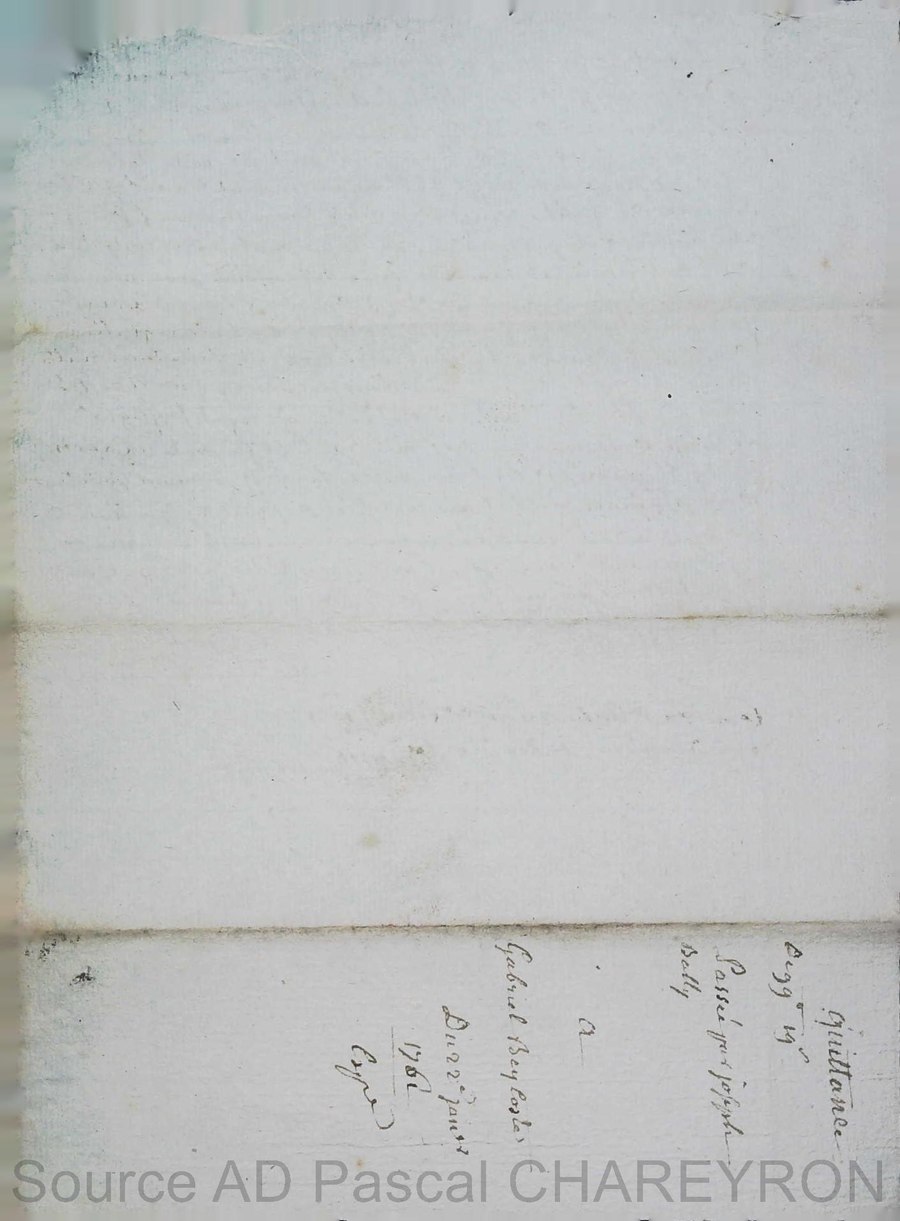 Quittance
De 99#  19s
Passée par joseph
Bally
a
Gabriel Beylosles
Du 22e janvr
1761
Expe)
Source AD Pascal CHAREYRON